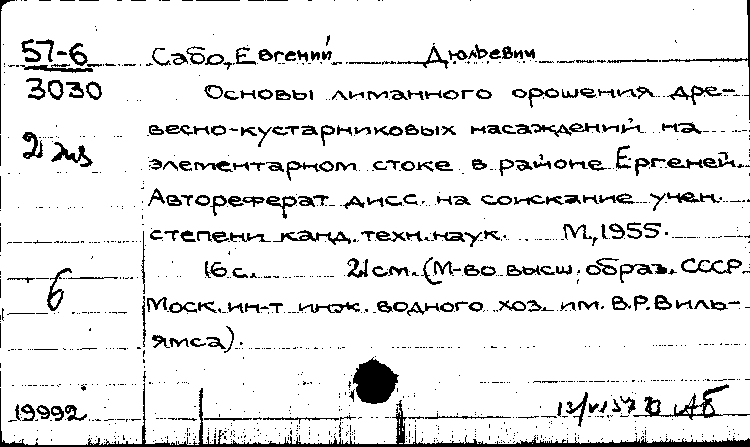 57-6 Сабо, Евгений Дюльевич
3030 Основы лиманного орошения дре-
2 экз весно-кустарниковых насаждений на
элементарном стоке в районе Ергеней.
Автореферат дисс. на соискание учен.
степени канд. техн. наук. М., 1955.
16 с. 21 см. (М-во высш. образ. СССР
6 Моск. ин-т инж. водного хоз. им. В.Р. Виль-
ямса).
19992